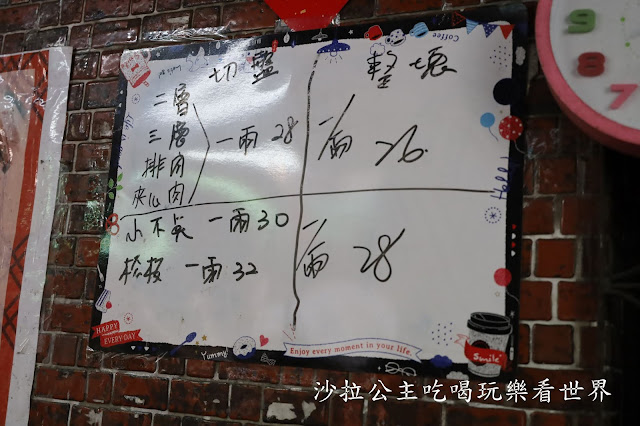 切盤 整塊
二層
三層 一兩 28 一兩 26
排肉
夾心肉
小不長 一兩 30 一兩 28
松板 一兩 32
Coffee
Happy
HAPPY
EVERY DAY
Yummy
Enjoy every moment in your life.
Smile
沙拉公主吃喝玩樂看世界
9
8
7
6